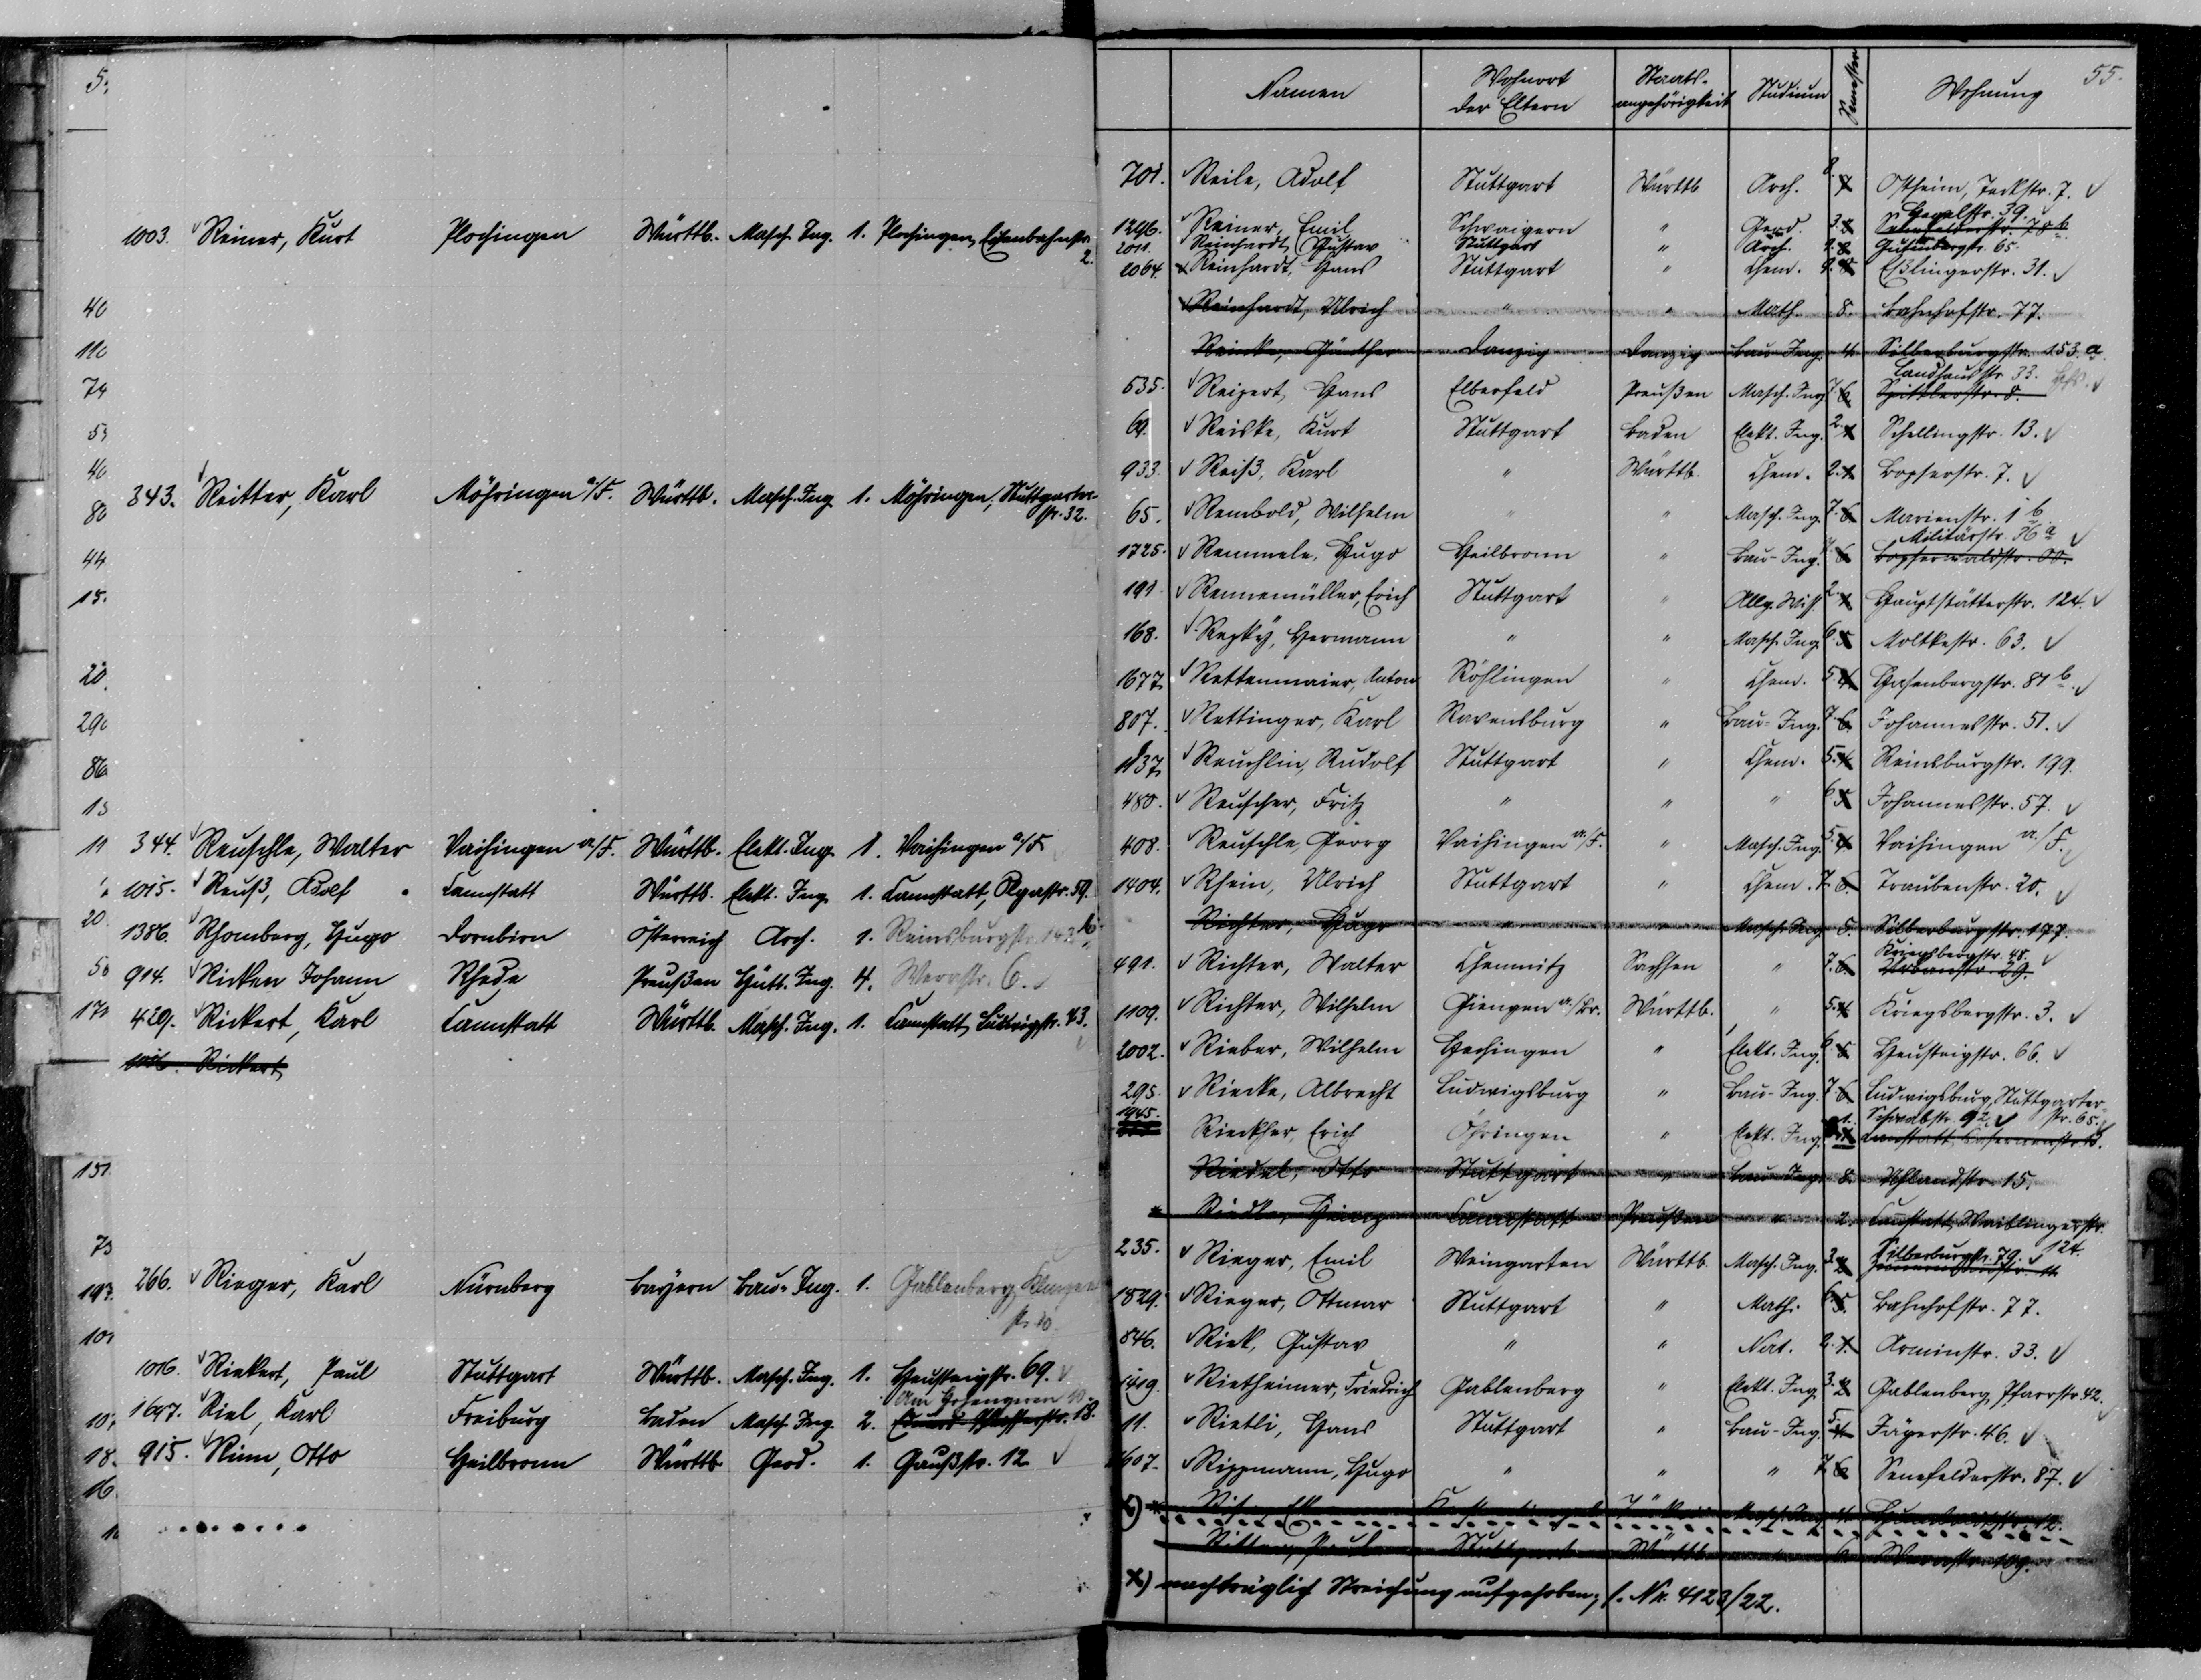 5.
1003. Reiner, Kurt Plochingen Württb. Masch. Ing. 1. Plochingen, Eisenbahnstr.
2.
40
110
74
53
40
343. Reitter, Karl Möhringen a/F. Württb. Masch. Ing. 1. Möhringen, Stuttgarter-
str. 32.
80
44
15.
20.
290
86
13
11 344. Reuschle, Walter Vaihingen a/F. Württb. Elekt. Ing. 1. Vaihingen a/F.
1015. Reuß, Adolf Cannstatt Württb. Elekt. Ing. 1. Cannstatt, Olgastr. 59.
20. 1386. Rhomberg, Hugo Dornbirn Österreich Arch. 1. Reinsburgstr. 143 b.
50 914. Ricken Johann Rhede Preußen Hütt. Ing. 4. Werastr. 6.
170 429. Rickert, Karl Cannstatt Württb. Masch. Ing. 1. Cannstatt, Ludwigstr. 43.
1016. Rickert
151
73
193. 266. Rieger, Karl Nürnberg Bayern Bau-Ing. 1. Gablenberg, Klingen
str. 10.
101
1016. Riekert, Paul Stuttgart Württb. Masch. Ing. 1. Heusteigstr. 69.
10. 1697. Riel, Karl Freiburg Baden Masch. Ing. 2. 18.
18. 915. Rimm, Otto Heilbronn Württb. Geod. 1. Gaußstr. 12
16.
55.
Namen Wohnort der Eltern Staats-angehörigkeit Studium Semester Wohnung
701. Reile, Adolf Stuttgart Württb Arch. 8. 7 Ostheim, Teckstr. 7.
Hegelstr. 39.
1296. Reiner, Emil Schwaigern " Geod. 3. Senefelderstr. 78 b.
2011. Reinhardt, Gustav Stuttgart " Arch. Gutenbergstr. 65.
2064. Reinhardt, Hans Stuttgart " Chem. Eßlingerstr. 31.
Reinhardt, Ulrich " " Math. 8. Bahnhofstr. 77.
Reinke, Günther Danzig Danzig Bau-Ing. 4. Silberburgstr. 153. a.
Landhausstr. 33.
635. Reizert, Hans Elberfeld Preußen Masch. Ing. 7. 6. Spittlerstr. 8.
69. Reiske, Kurt Stuttgart Baden Elekt. Ing. 2. 1 Schellingstr. 13.
933. Reiß, Karl " Württb. Chem. 2. 1. Bopserstr. 7.
65. Rembold, Wilhelm " " Masch. Ing. 7. 6. Marienstr. 1 b
Militärstr. 36 a
1725. Remmele, Hugo Heilbronn " Bau-Ing. 6. Bopserwaldstr.
191 Rennemüller, Erich Stuttgart " Allg. Wiss. 2. 1 Hauptstätterstr. 124.
168. Rezky, Hermann " " Masch. Ing. 6. 5 Moltkestr. 63.
1677. Rettenmaier, Anton Röhlingen " Chem. 5. 4. Hasenbergstr. 81 b.
807. Rettinger, Karl Ravensburg " Bau-Ing. 7. 6. Johannesstr. 51.
1137. Reuchlin, Rudolf Stuttgart " Chem. 5. 4. Reinsburgstr. 199.
480. Reuscher, Fritz " " " 6. 5. Johannesstr. 57.
408. Reuschle, Georg Vaihingen a./F. " Masch. Ing. 5. 4. Vaihingen a./F.
1404. Rhein, Ulrich Stuttgart " Chem. 7. 6. Traubenstr. 20.
Richter, Hugo " " Masch. Ing. 5. Silberburgstr. 177.
Kriegsbergstr. 48.
491. Richter, Walter Chemnitz Sachsen " 7. 6. Urbanstr. 29.
1109. Richter, Wilhelm Giengen a./Br. Württb. " 5. 4. Kriegsbergstr. 3.
2002. Rieber, Wilhelm Hechingen " Elekt. Ing. 6. 5. Heusteigstr. 66.
295. Riecke, Albrecht Ludwigsburg " Bau-Ing. 7. 6. Ludwigsburg, Stuttgarter-
str. 65.
1945. Schwabstr. 92
Rieckher, Erich Öhringen " Elekt. Ing. Cannstatt, Kasernenstr.
Riedel, Otto Stuttgart " Bau-Ing. 8. Uhlandstr. 15.
Riedle, Heinz Cannstatt Preußen " 2. Cannstatt, Waiblingerstr.
124.
Silberburgstr. 79.
235. Rieger, Emil Weingarten Württb. Masch. Ing. 3. 2.
1829. Rieger, Ottmar Stuttgart " Math. 6. 5. Bahnhofstr. 77.
846. Riek, Gustav " " Nat. 2. 1. Arminstr. 33.
1419. Rietheimer, Friedrich Gablenberg " Elekt. Ing. 3. 2 Gablenberg, Pfarrstr. 42.
11. Rietli, Hans Stuttgart " Bau-Ing. 5. 4. Jägerstr. 46.
1607. Rippmann, Hugo " " " 7. 6. Senefelderstr. 87.
Masch. Ing. 4. Humboldtstr. 12.
Ritter, Paul Stuttgart Württb. " 6. Werastr. 109.
x) nachträglich Streichung aufgehoben; s. Nr. 4123/22.